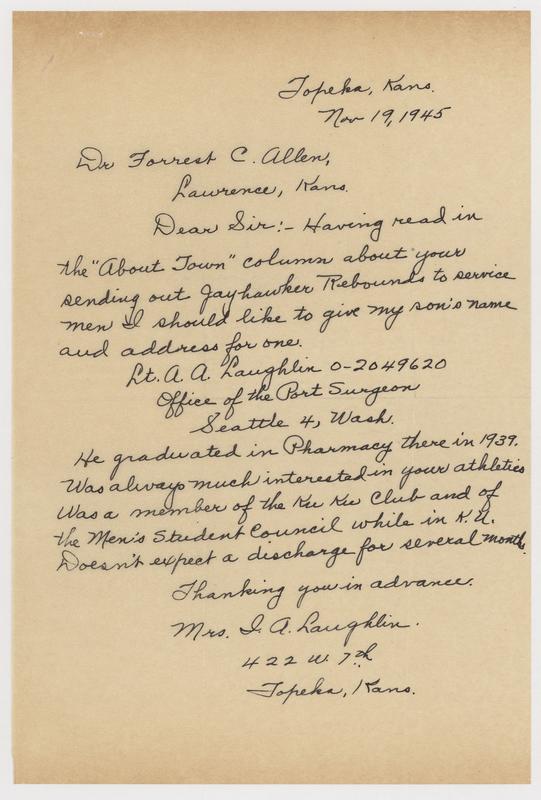 Topeka, Kans.
Nov 19, 1945
Dr Forrest C. Allen,
Lawrence, Kans.
Dear Sir:- Having read in
the "About Town" column about your
sending out Jayhawker Rebounds to service
men I should like to give my son's name
and address for one.
Lt. A. A. Laughlin O-2049620
Office of the Port Surgeon
Seattle 4, Wash.
He graduated in Pharmacy there in 1939.
Was always much interested in your athletics
Was a member of the Ku Ku Club and of
the Men's Student Council while in K.U.
Doesn't expect a discharge for several months.
Thanking you in advance.
Mrs. I. A. Laughlin.
422 W. 7th
Topeka, Kans.